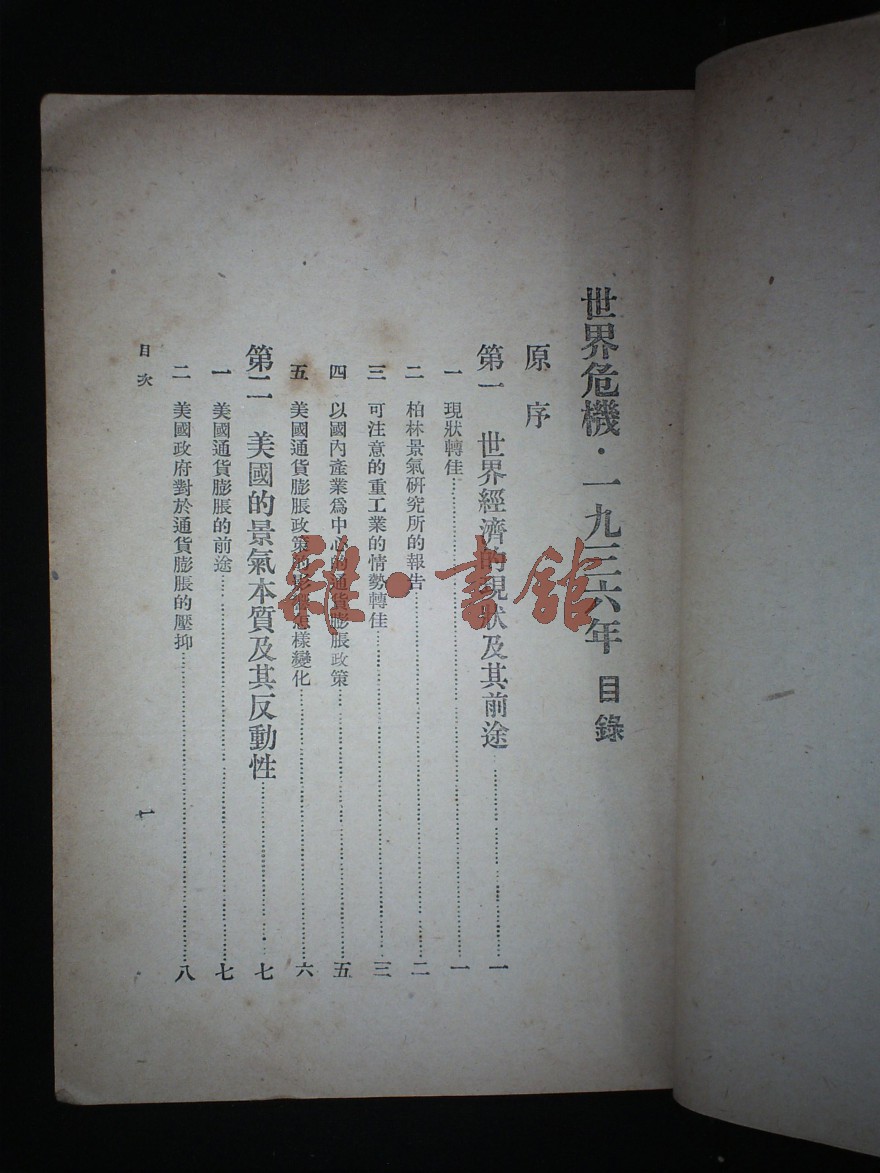 世界危機·一九三六年 目錄
原序
第一 世界經濟的現狀及其前途 一
一 現狀轉佳 一
二 柏林景氣研究所的報告 二
三 可注意的重工業的情勢轉佳 三
四 以國內產業爲中心的通貨膨脹政策 五
五 美國通貨膨脹政策的影響怎樣變化 六
第二 美國的景氣本質及其反動性 七
一 美國通貨膨脹的前途 七
二 美國政府對於通貨膨脹的壓抑 八
目次 一
雜·書館